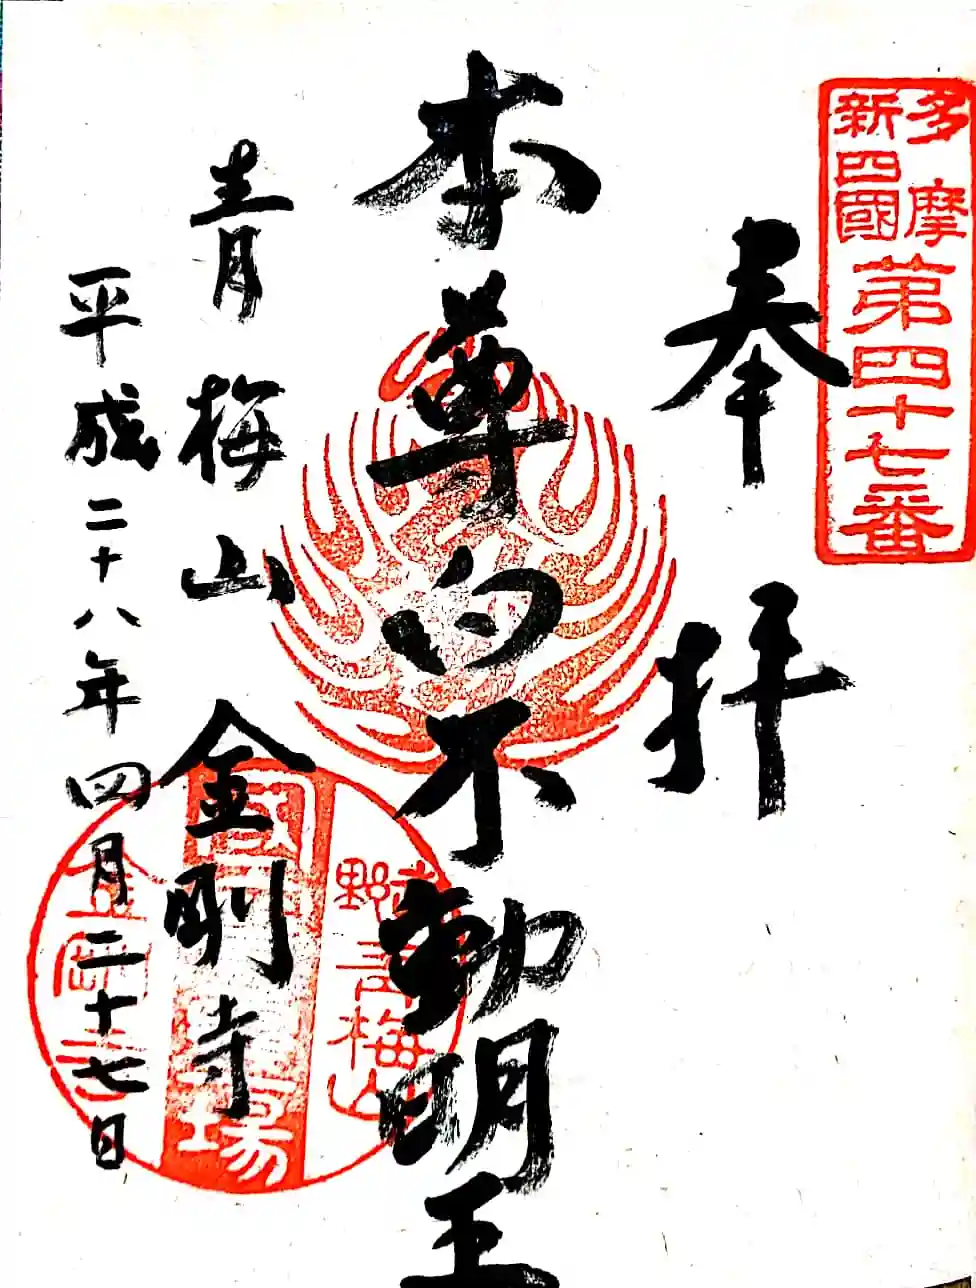 多摩
新四國
第四十七番
奉拝
本尊白不動明王
青梅山 金剛寺
平成二十八年四月二十七日
野青梅山
場
金剛寺